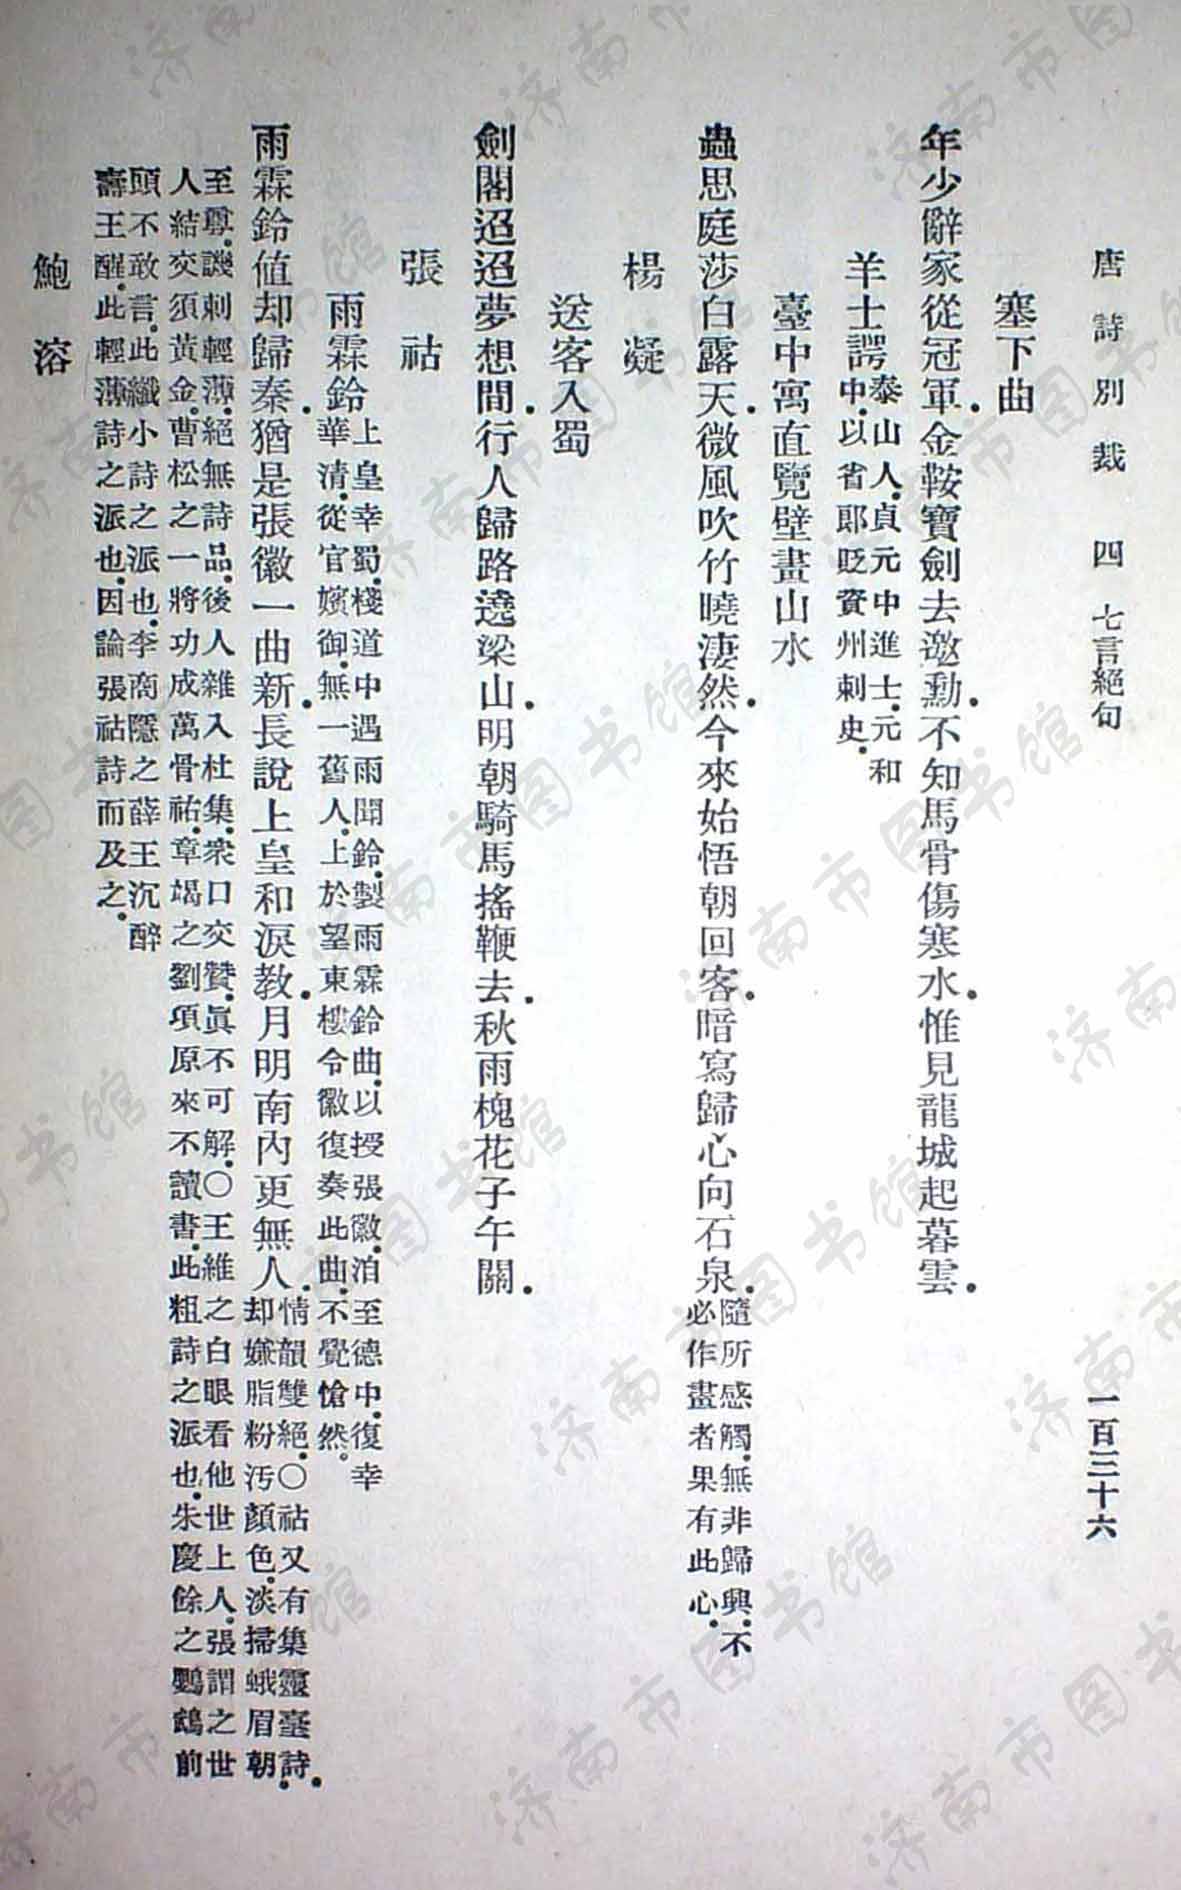 唐詩別裁　四　七言絕句　一百三十六
塞下曲
年少辭家從冠軍．金鞍寶劍去邀勳．不知馬骨傷寒水．惟見龍城起暮雲．
羊士諤　泰山人．貞元中進士．元和
中．以省郎貶資州刺史．
臺中寓直覽壁畫山水
蟲思庭莎白露天．微風吹竹曉淒然．今來始悟朝回客．暗寫歸心向石泉．隨所感觸．無非歸興．不
必作畫者果有此心．
楊凝
送客入蜀
劍閣迢迢夢想間．行人歸路遶梁山．明朝騎馬搖鞭去．秋雨槐花子午關．
張祜
雨霖鈴　上皇幸蜀．棧道中遇雨聞鈴．製雨霖鈴曲．以授張徽．洎至德中．復幸
華清．從官嬪御．無一舊人．上於望東樓令徽復奏此曲．不覺愴然。
雨霖鈴值却歸秦．猶是張徽一曲新．長說上皇和淚教．月明南內更無人．情韻雙絕．〇祜又有集靈臺詩．
却嫌脂粉汚顏色．淡掃蛾眉朝
至尊．譏刺輕薄．絕無詩品．後人雜入杜集．衆口交贊．眞不可解．〇王維之白眼看他世上人．張謂之世
人結交須黃金．曹松之一將功成萬骨祜．章竭之劉項原來不讀書．此粗詩之派也．朱慶餘之鸚鵡前
頭不敢言．此纖小詩之派也．李商隱之薛王沉醉
壽王醒．此輕薄詩之派也．因論張祜詩而及之．
鮑溶
济南市图书馆